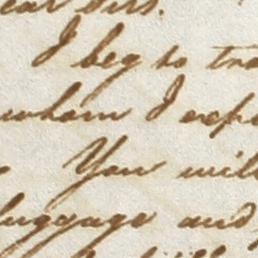 ear Sirs.
I beg to tra
whom I expe
You will
luggage and